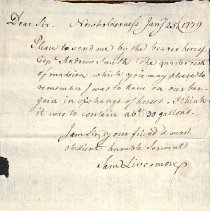 Dear Sir. Newholderness Jany 25th 1779
Please to send me by the bearer hereof
Capt. Andrew Smyth The quarter cask
of madeira which you may please to
remember I was to have on our bar-
gain in exchange of horses. I think
it was to contain 26 or 30 gallons.
I am Sir your friend & most
obedient humble servant
Saml Livermore